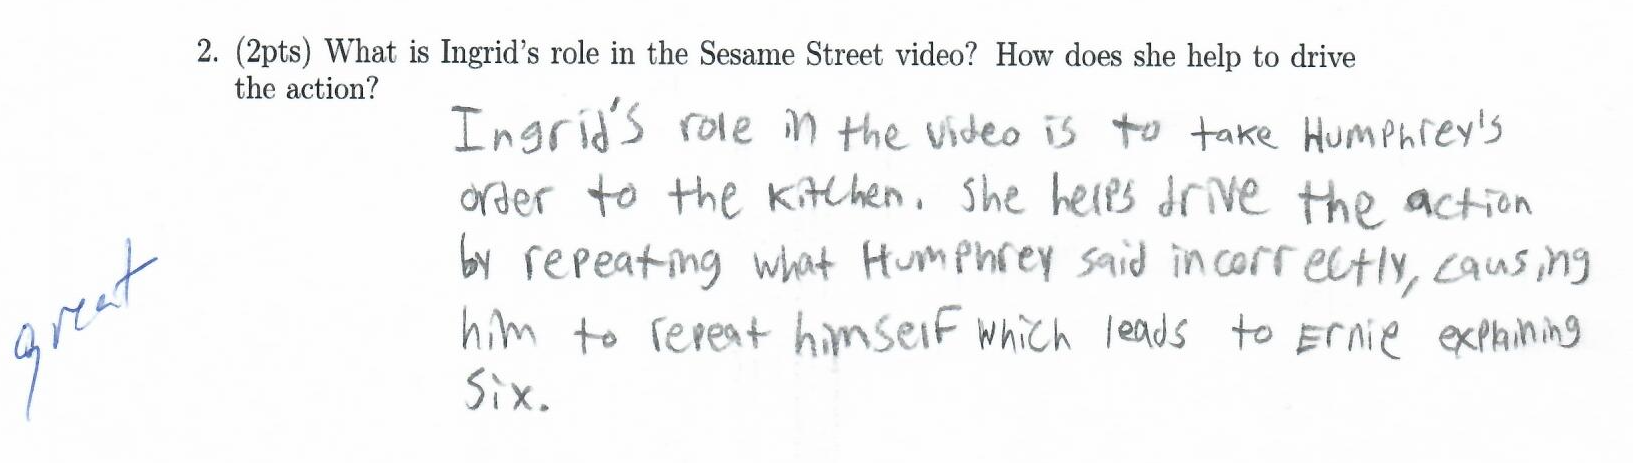 2. (2pts) What is Ingrid's role in the Sesame Street video? How does she help to drive
the action?
Ingrid's role in the video is to take Humphrey's
order to the kitchen. She helps drive the action
by repeating what Humphrey said incorrectly, causing
him to repeat himself which leads to Ernie explaining
six.
great